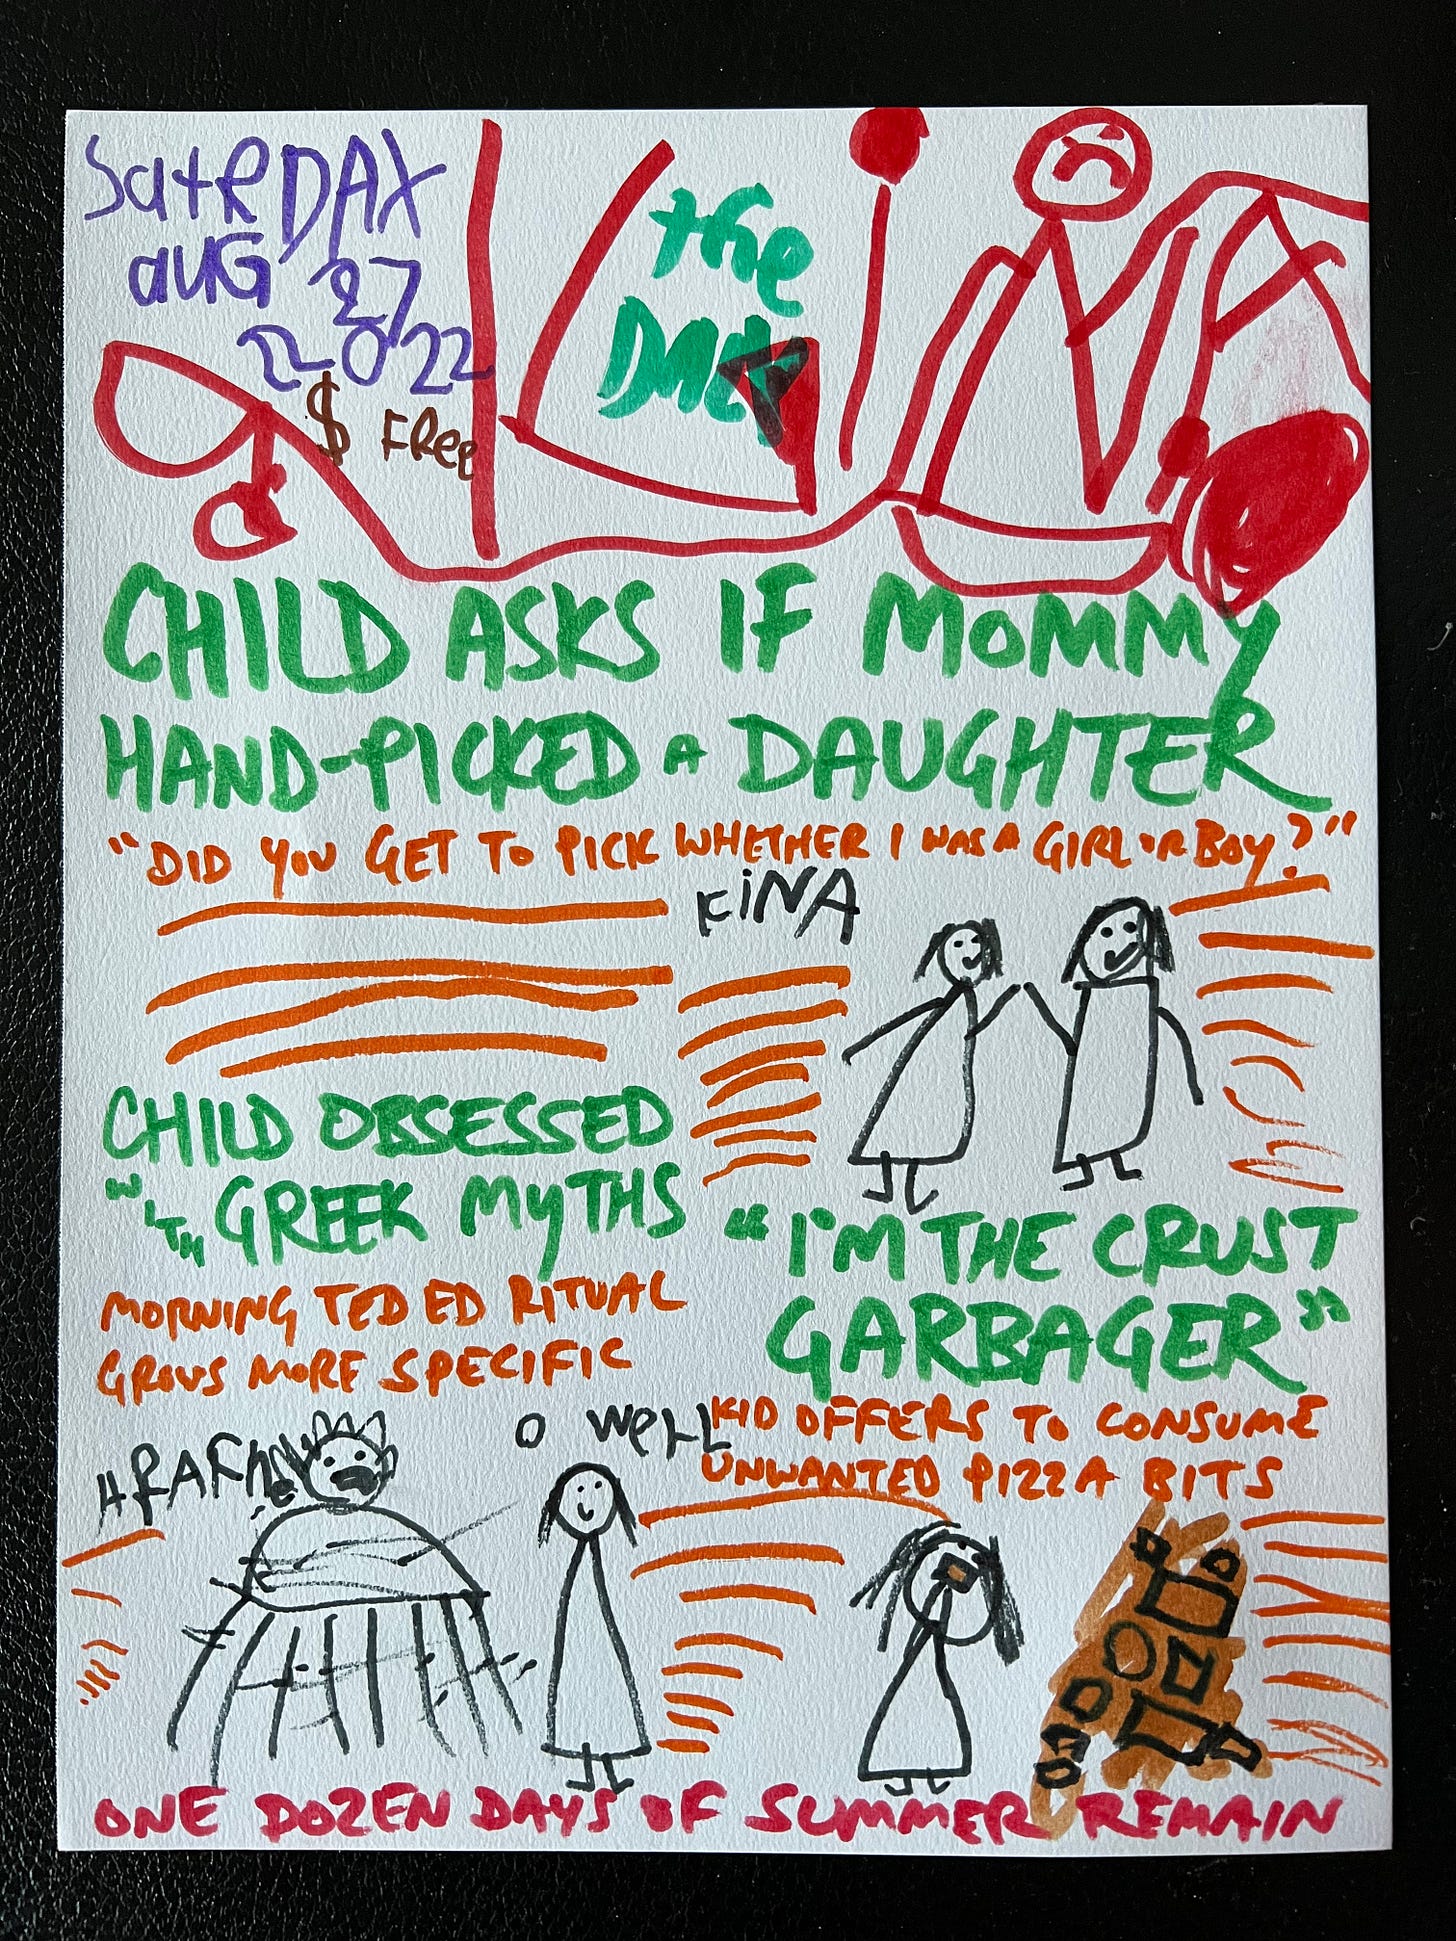 SatRDAY
auG 27
2022
$ FRee
the
CHILD ASKS IF MOMMY
HAND-PICKED A DAUGHTER
"DID YOU GET TO PICK WHETHER I WAS A GIRL OR BOY?"
KiNA
CHILD OBSESSED
WITH GREEK MYTHS
MORNING TED ED RITUAL
GROWS MORE SPECIFIC
"I'M THE CRUST
GARBAGER"
KID OFFERS TO CONSUME
UNWANTED PIZZA BITS
O WeLL
ONE DOZEN DAYS OF SUMMER REMAIN